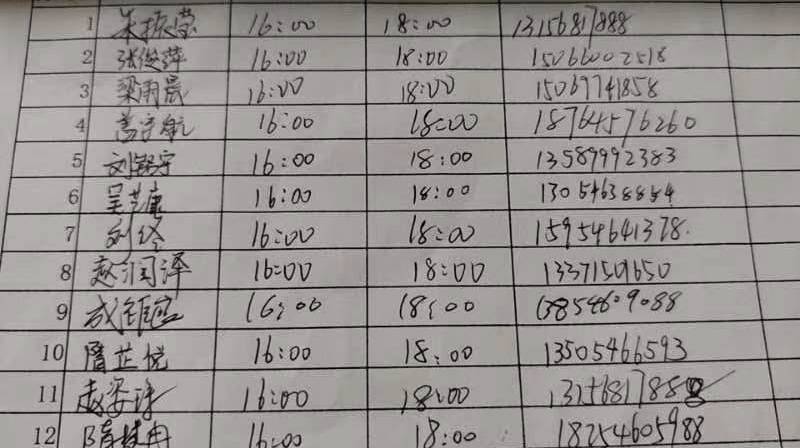 1 朱振莹 16:00 18:00 13156817888
2 张俊萍 16:00 18:00 15066002518
3 梁雨晨 16:00 18:00 15069741858
4 高宇航 16:00 18:00 18764576260
5 16:00 18:00 13589992383
6 吴芦康 16:00 18:00 13054638854
7 16:00 18:00 15954641378.
8 赵润泽 16:00 18:00 13371509650
9 16:00 18:00 13854609088
10 隋芷悦 16:00 18:00 13505466593
11 赵姿诗 16:00 18:00
12 16:00 18:00 18254605988